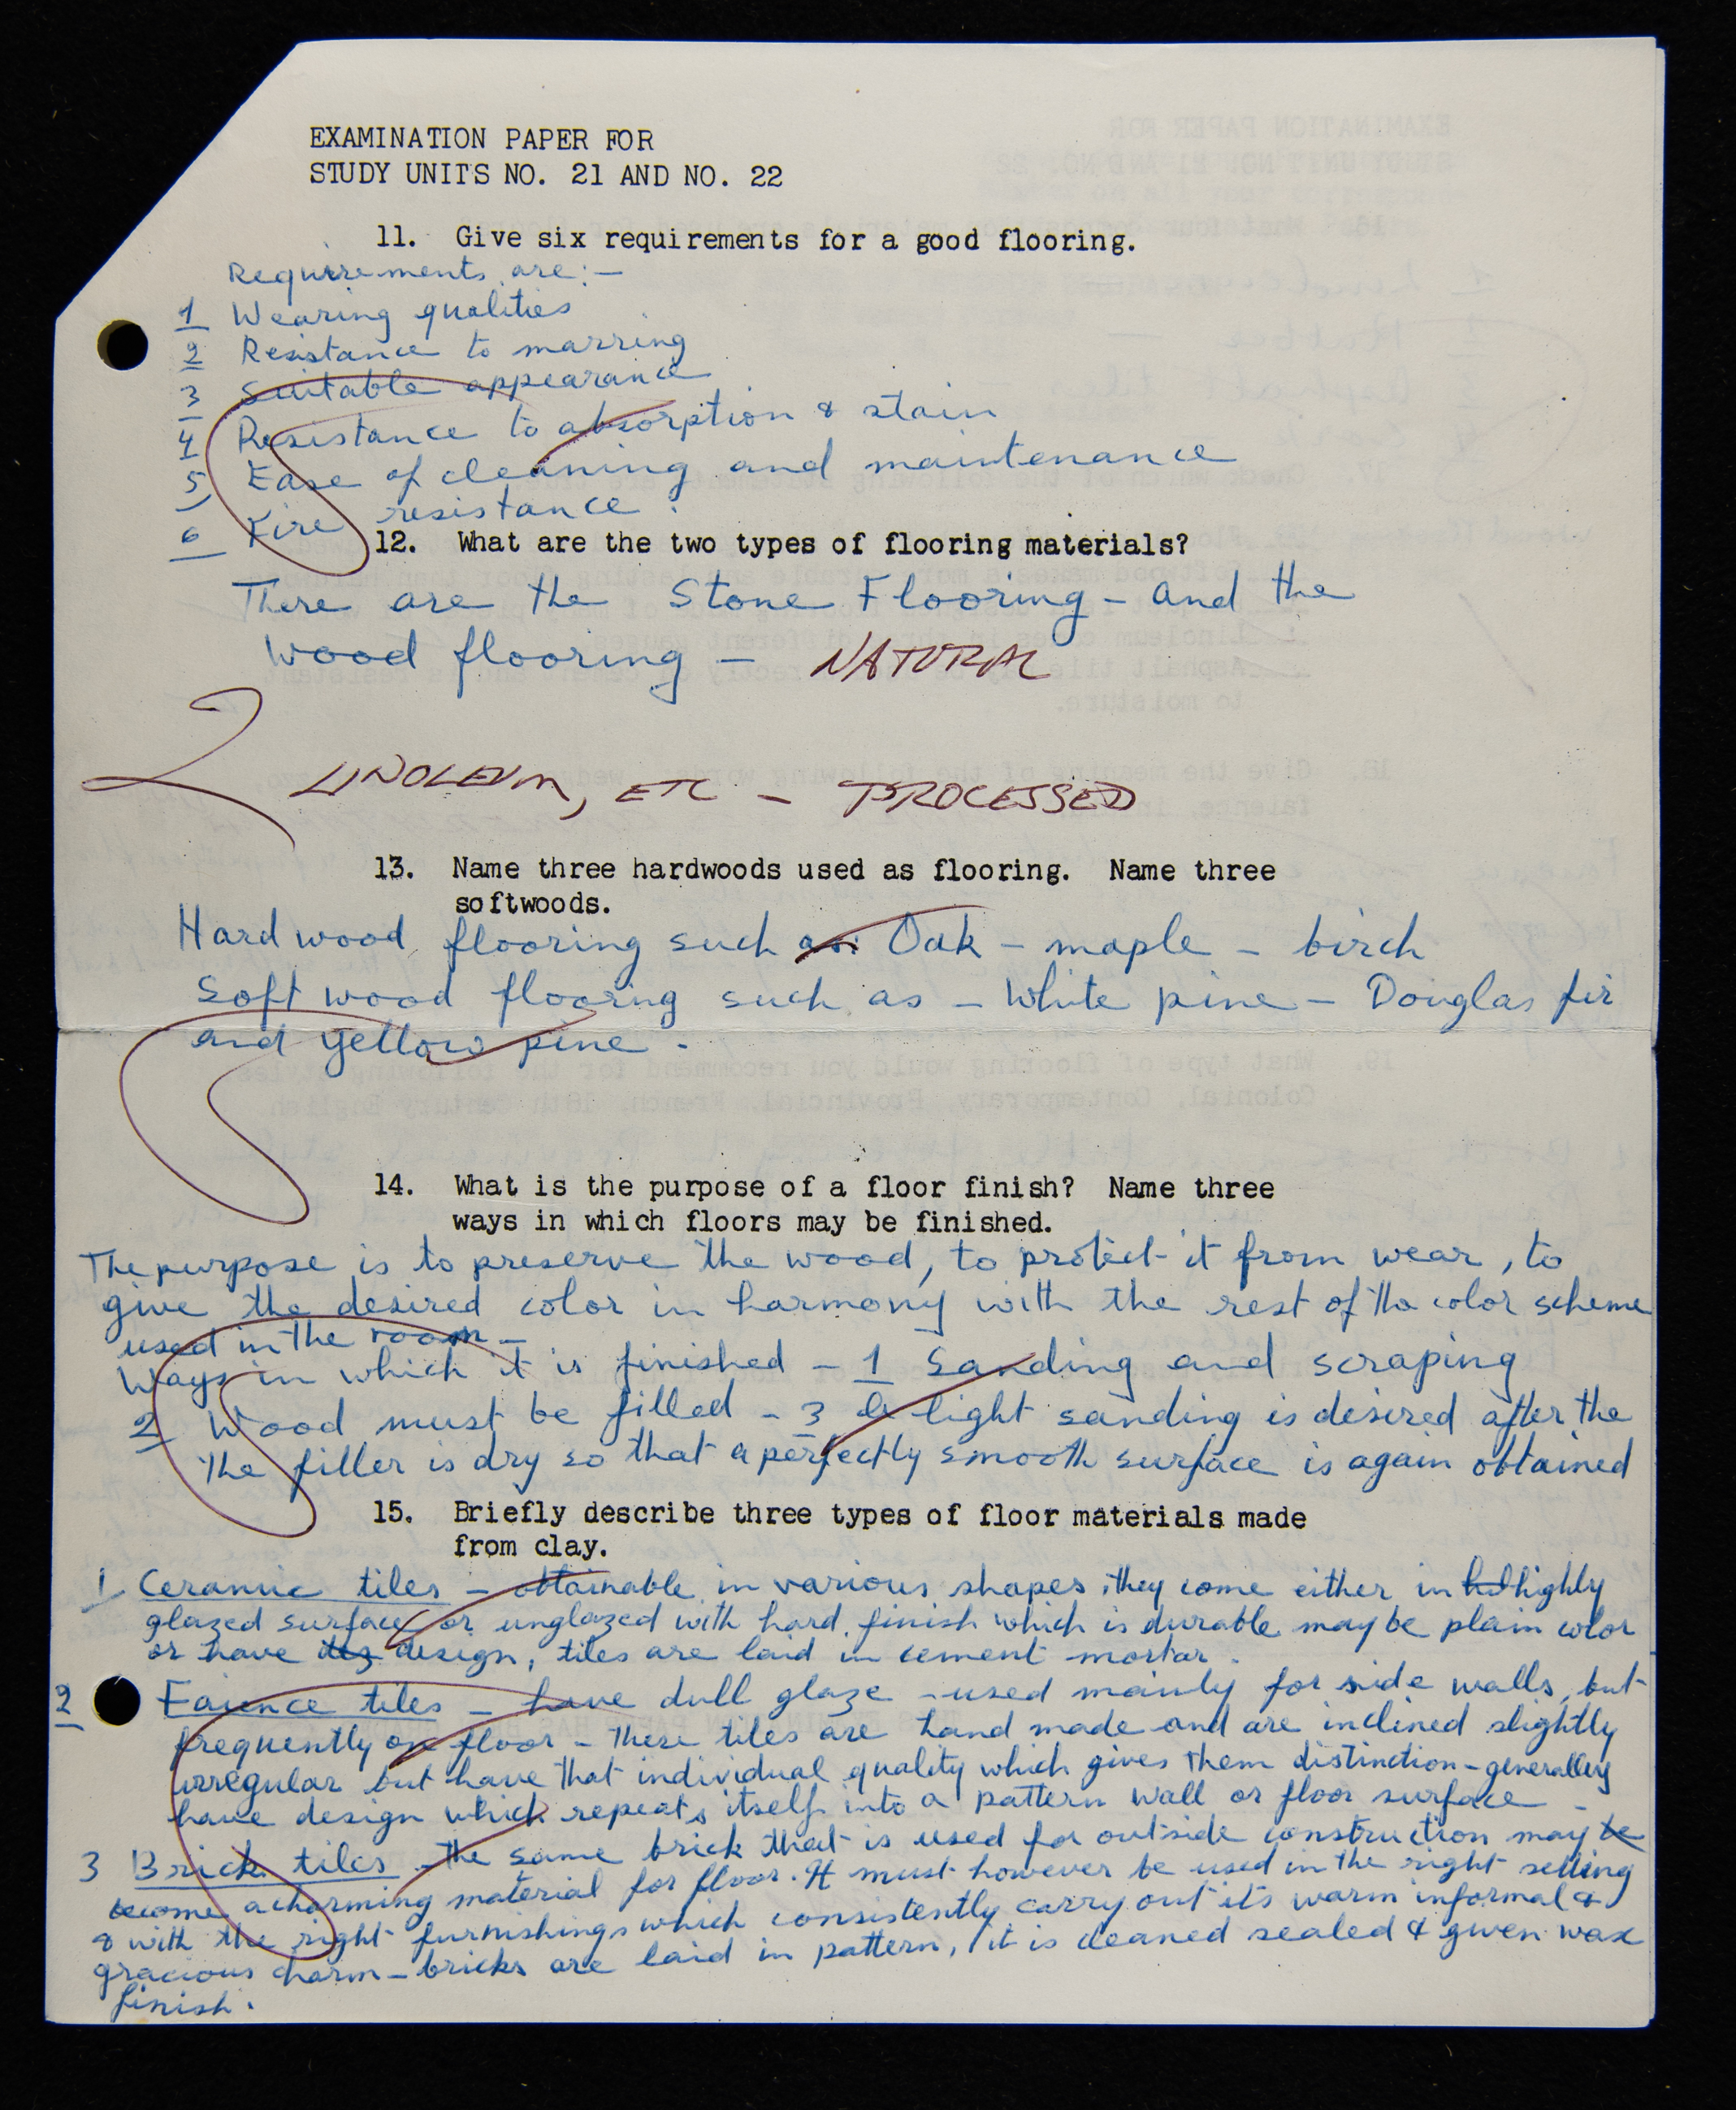 EXAMINATION PAPER FOR
STUDY UNITS NO. 21 AND NO. 22
11. Give six requirements for a good flooring.
Requirements are:—
1 Wearing qualities
2 Resistance to marring
3 Suitable appearance
4 Resistance to absorption & stain
5 Ease of cleaning and maintenance
6 Fire resistance.
12. What are the two types of flooring materials?
There are the Stone Flooring - and the
Wood flooring — NATURAL
2 LINOLEUM, ETC — PROCESSED
13. Name three hardwoods used as flooring. Name three
softwoods.
Hard wood flooring such as: Oak - maple - birch
Soft wood flooring such as - White pine - Douglas fir
and yellow pine.
14. What is the purpose of a floor finish? Name three
ways in which floors may be finished.
The purpose is to preserve the wood, to protect it from wear, to
give the desired color in harmony with the rest of the color scheme
used in the room -
Ways in which it is finished - 1 Sanding and scraping
2 Wood must be filled - 3 a light sanding is desired after the
the filler is dry so that a perfectly smooth surface is again obtained
15. Briefly describe three types of floor materials made
from clay.
1 Ceramic tiles - obtainable in various shapes, they come either in highly
glazed surface or unglazed with hard finish which is durable may be plain color
or have design, tiles are laid in cement mortar.
2 Faience tiles - have dull glaze - used mainly for side walls, but
frequently on floor - These tiles are hand made and are inclined slightly
irregular but have that individual quality which gives them distinction - generally
have design which repeats itself into a pattern wall or floor surface -
3 Brick tiles - the same brick that is used for outside construction may be
become a charming material for floor. It must however be used in the right setting
& with the right furnishings which consistently carry out its warm informal &
gracious charm - bricks are laid in pattern, it is cleaned sealed & given wax
finish.